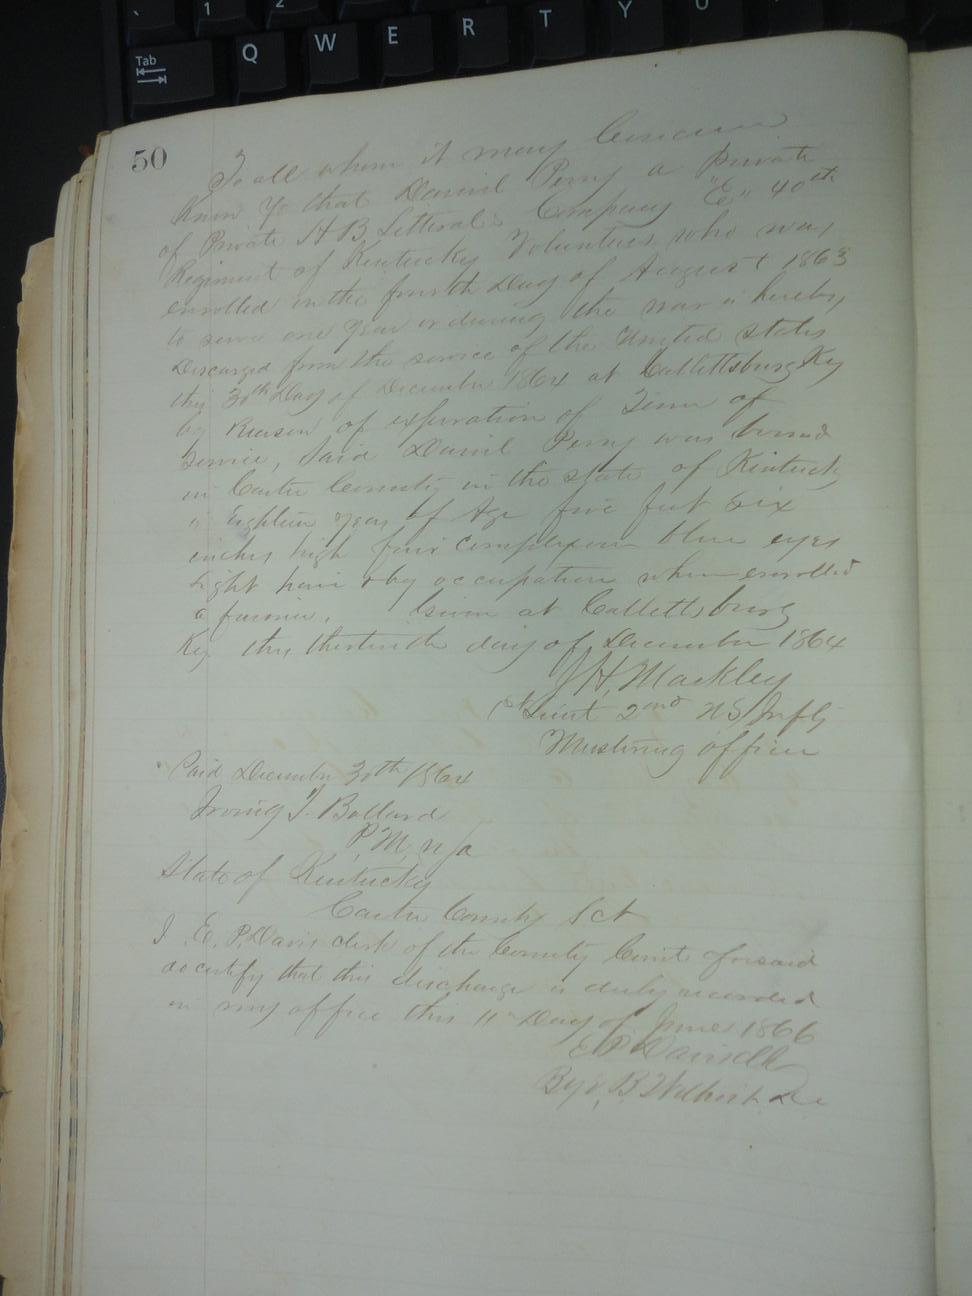 ` 1 2
Tab Q W E R T Y U
50
To all whom it may Concern
Know Ye that Daniel Perry a Private
of Private H B Litteral's Company "E" 40th
Regiment of Kentucky Volunteers who was
enrolled on the fourth Day of August 1863
to serve one year or during the war is hereby
Discarged from the service of the United States
this 30th Day of December 1864 at Catlettsburg Ky
by Reason of expiration of Term of
Service, Said Daniel Perry was born
in Carter County in the state of Kentucky
is Eighteen years of Age five feet six
inches high fair complexion blue eyes
Light hair & by occupation when enrolled
a farmer. Given at Catlettsburg
Ky this thirtieth day of December 1864
J H, Mackley
1st Lieut 2nd US Infty
Mustering officer
Paid December 30th 1864
Irving T. Bollard
P M
State of Kentucky
Carter County Sct
I E. P. Davis clerk of the County Court aforesaid
do certify that this discharge is duly recorded
in my office this 11 Day of June 1866
E P Davis Clk
By B